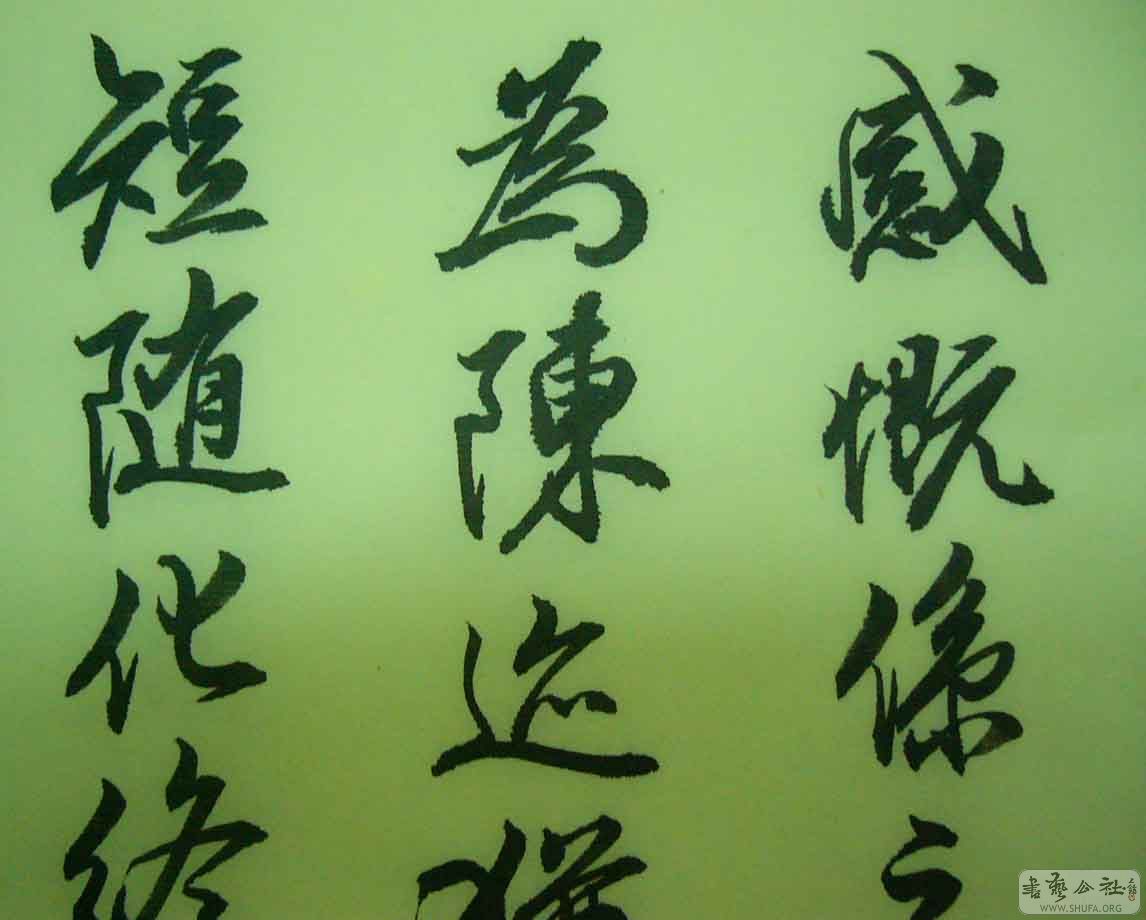 感慨係之
為陳迹猶
短随化終
書藝公社
WWW.SHUFA.ORG